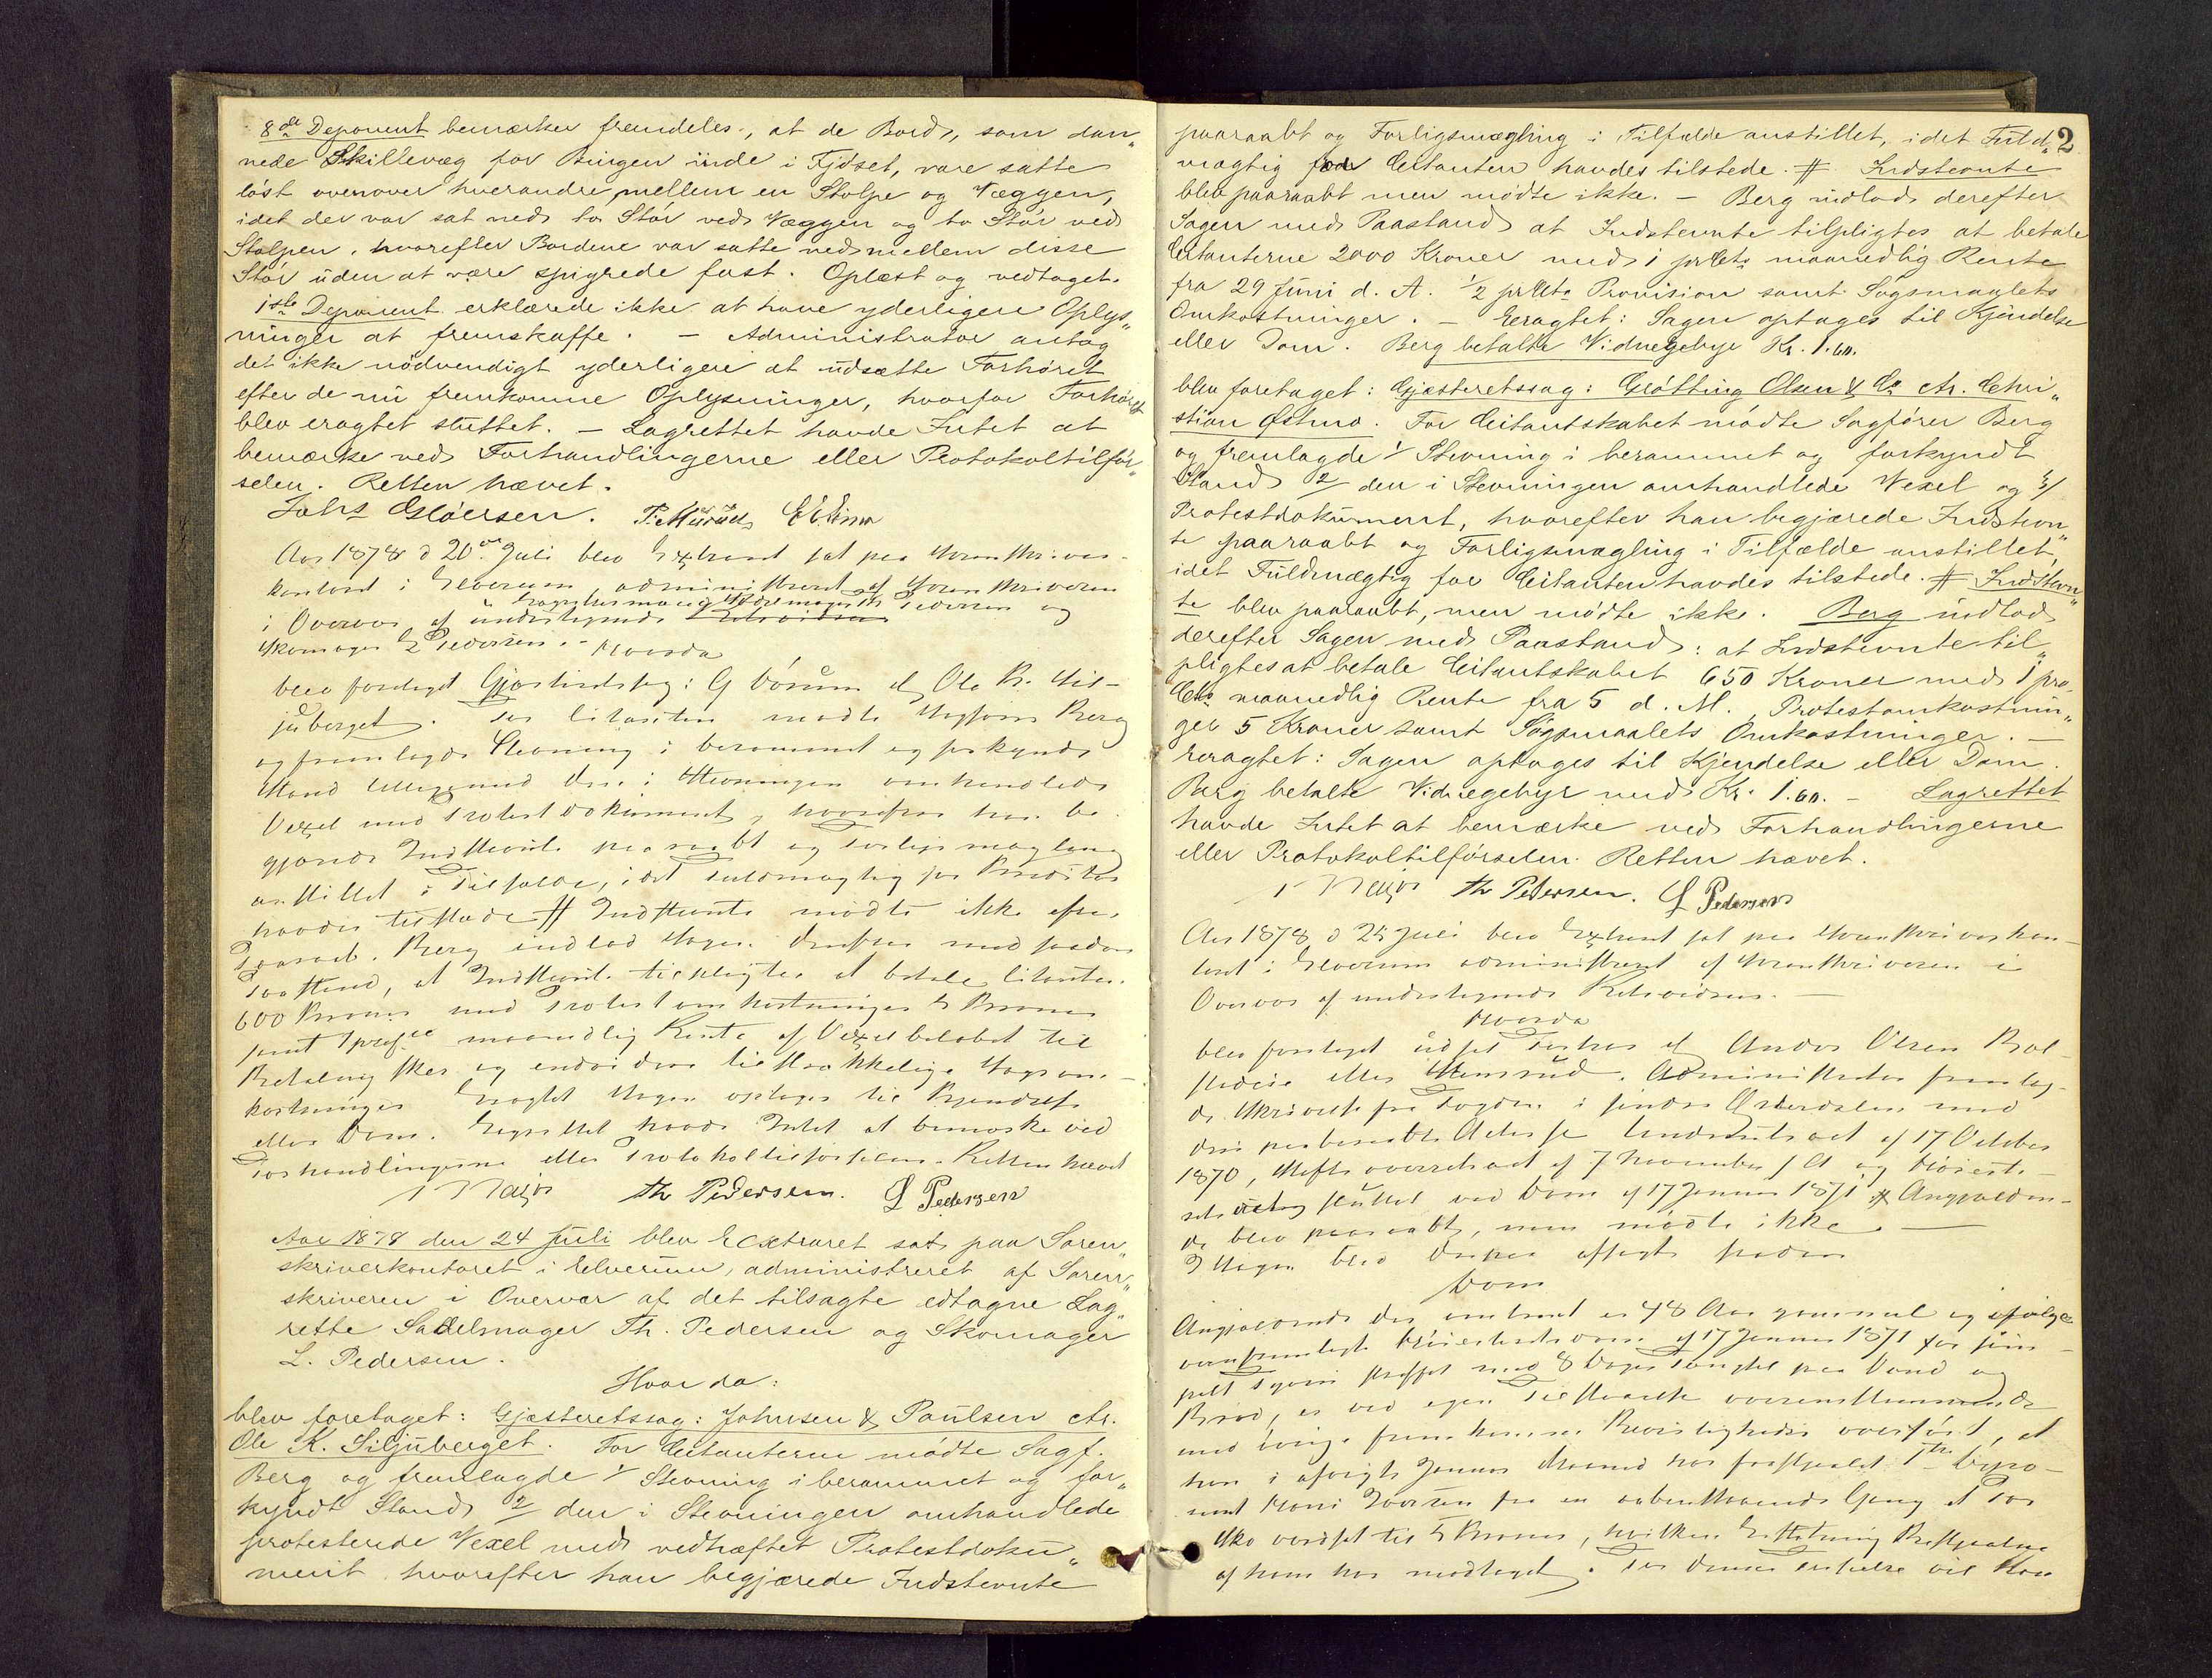 8de Deponent bemærker fremdeles, at de Bord, som dan„
nede Skillevæg for Bingen inde i Fjøset, vare satte
løst ovenover hverandre, mellem en Stolpe og Væggen,
idet der var sat ned to Stør ved Væggen og to Stør ved
Stolpen, hvorefter Bordene var satte ned mellem disse
Stør uden at være spigrede fast. Oplæst og vedtaget.
1ste Deponent erklærede ikke at have yderligere Oplys„
ninger at fremskaffe. – Administrator antog
det ikke nödvendigt yderligere at udsætte Forhøret
efter de nu fremkomne Oplysninger, hvorfor Forhøret
blev eragtet sluttet. – Lagrettet havde Intet at
bemærke ved Forhandlingerne eller Protokoltilför„
selen. Retten hævet.
Aar 1878 d 20de Juli blev Extraret sat paa Sorenskriver-
kontoret i Elverum administreret af Sorenskriveren
i Overvær af undertegnede Pedersen og
Skomager L Pedersen. – Hvorda
blev foretaget Gjæsteretssag: G Børum ctr Ole K. Sil-
juberget. For Citanten mødte Sagfører Berg
og fremlagde Stevning i berammet og forkyndt
Stand tilligemed den i Stevningen omhandlede
Vexel med Protestdokument, hvorefter han be-
gjærede Indstevnte paaraabt og Forligsmægling
anstillet i Tilfælde, idet Fuldmægtig for
havdes tilstede # Indstevnte mødte ikke efter
Paaraab. Berg indlod Sagen derefter med saadan
Paastand, at Indstevnte tilpligtes at betale Citanten
600 Kroner med Protestomkostninger 5 Kroner
samt 1 prCt maanedlig Rente af Vexelbeløbet til
Betaling sker og endvidere tilstrækkelige Sagsom-
kostninger Eragtet Sagen optages til Kjendelse
eller Dom. Lagrettet havde Intet at bemærke ved
Forhandlingerne eller Protokoltilførselen. Retten hævet
Th Pedersen. L Pedersen
Aar 1878 den 24 Juli blev Extraret sat paa Soren„
skriverkontoret i Elverum, administreret af Soren„
skriveren i Overvær af det tilsagte edtagne Lag„
rette Sadelmager Th. Pedersen og Skomager
L. Pedersen.
Hvor da:
blev foretaget: Gjæsteretssag: Johnsen & Paulsen ctr.
Ole K. Siljuberget. For Citanterne mødte Sagf.
Berg og fremlagde 1/ Stevning i berammet og for„
kyndt Stand 2/ den i Stevningen omhandlede
protesterede Vexel med vedhæftet Protestdoku„
ment, hvorefter han begjærede Indstevnte
2
paaraabt og Forligsmægling i Tilfælde anstillet, idet Fuld„
mægtig for Citanten havdes tilstede. # Indstevnte
blev paaraabt men mødte ikke. – Berg indlod derefter
Sagen med Paastand at Indstevnte tilpligtes at betale
Citanterne 2000 Kroner med 1 prCts maanedlig Rente
fra 29 Juni d. A. ½ prCts Provision samt Søgsmaalets
Omkostninger. – Eragtet: Sagen optages til Kjendelse
eller Dom. Berg betalte Vidnegebyr Kr. 1.60.
blev foretaget: Gjæsteretssag: Grøtting Olsen & Co ctr. Chri„
stian Østmo. For Citantskabet mødte Sagfører Berg
og fremlagde 1/ Stevning i berammet og forkyndt
Stand 2/ den i Stevningen omhandlede Vexel og 3/
Protestdokument, hvorefter han begjærede Indstevn„
te paaraabt og Forligsmægling i Tilfælde anstillet,
idet Fuldmægtig for Citanten havdes tilstede. # Indstevn„
te blev paaraabt, men mødte ikke. Berg indlod
derefter Sagen med Paastand: at Indstevnte til„
pligtes at betale Citantskabet 650 Kroner med 1 pro„
Cts maanedlig Rente fra 5 d. M., Protestomkostnin„
ger 5 Kroner samt Søgsmaalets Omkostninger. –
Eragtet: Sagen optages til Kjendelse eller Dom.
Berg betalte Vidnegebyr med Kr. 1.60. – Lagrettet
havde Intet at bemærke ved Forhandlingerne
eller Protokoltilførselen. Retten hævet.
Th Pedersen. L Pedersen
Aar 1878 d 25 Juli blev Extraret sat paa Sorenskriverkon-
toret i Elverum administreret af Sorenskriveren i
Overvær af undertegnede Retsvidner. –
Hvorda
blev foretaget udsat Forhør ctr Anders Olsen
eller Stensrud. Administrator fremlag-
de Skrivelse fra Fogden i søndre Østerdalen med
den paaberaabte Act
1870, Stiftsoverretsact af 7 November s A og Høieste-
retsact sluttet ved Dom af 17 Januar 1871 # Angjælden-
de blev paaraabt, men mødte ikke. –
I Sagen blev derpaa afsagt saadan
Dom
Angjældende der omtrent er 48 Aar gammel og ifølge
Høiesteretsdom af 17 Januar 1871 for sim-
pelt Tyveri straffet med 8 Dages Fængsel paa Vand og
Brød, er ved egen Tilstaaelse overensstemmende
med øvrige fremkomne Bevisligheder overført, at
han i afvigte Januar Maaned har frastjaalet
Iversen fra en aabenstaaende Gang et Par
Sko værdsat til 5 Kroner, hvilken Erstatning Bestjaalne
af ham har modtaget. For denne Forseelse vil han